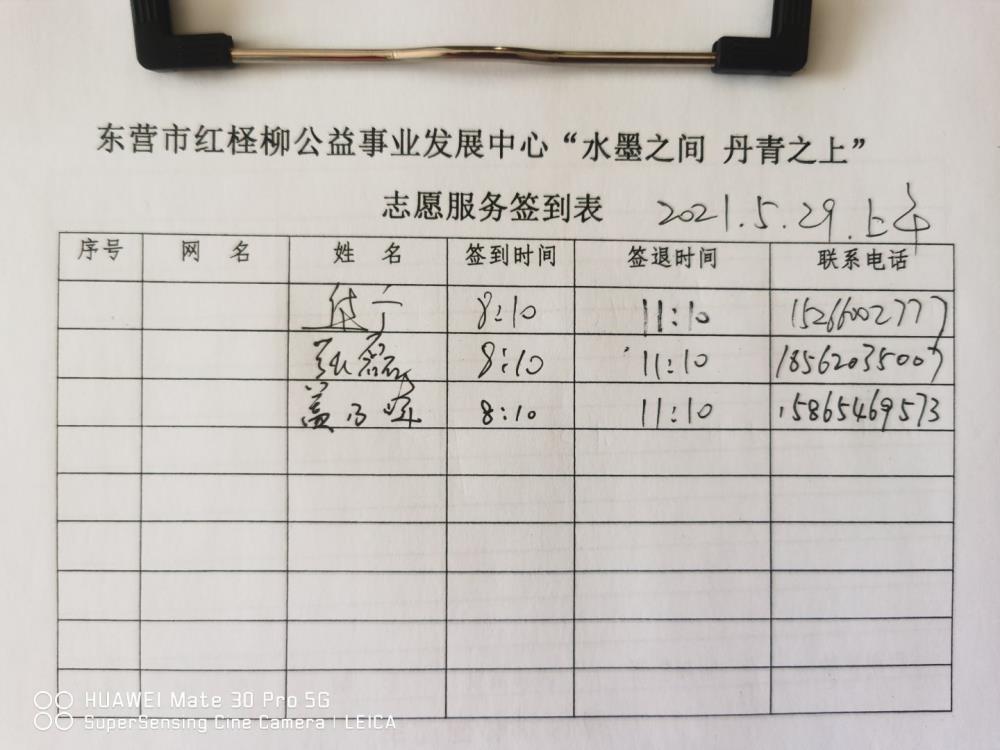 东营市红柽柳公益事业发展中心“水墨之间 丹青之上”
志愿服务签到表 2021.5.29.上午
序号 网 名 姓 名 签到时间 签退时间 联系电话
8:10 11:10 15266002777
张磊 8:10 11:10 18562035007
盖 8:10 11:10 15865469573
HUAWEI Mate 30 Pro 5G
SuperSensing Cine Camera | LEICA